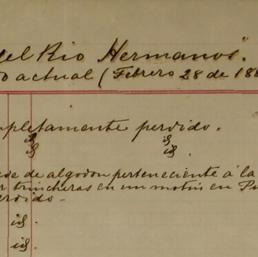 del Rio Hermanos".
actual (Febrero 28 de 18
pletamente perdido.
id id
id id
de algodon perteneciente á la
trincheras en un motin en
erdido.
id.
id.